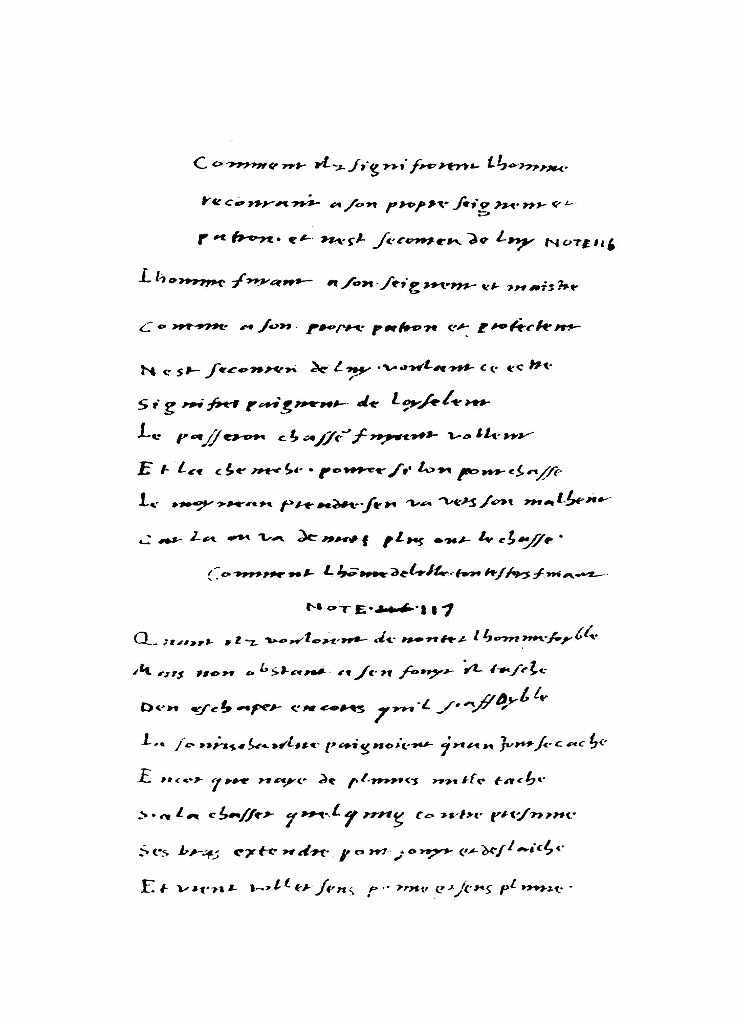 Comment ilz signifioient lhomme
recourant a son propre seigneur et
patron. et nest secoureu de luy NOTE 116
Lhomme fuyant a son seigneur et maistre
Comme a son propre patron et protecteur
Nest secoureu de luy. voulant ce estre
Signifier paignent de loyseleur
Le passeron chassé fuyant volleur
Et la cheueche. pource se lon pourchasse
Le moyneau prendre sen va vers son malheur
Car la ou va de mors plus ont le chasse.
Comment lhōme debille fuiant
NOTE. 117
Quant ilz vouloient denoter lhomme foyble
Mais non obstant a sen fouyr il tasche
Den eschaper encores qu'il s.affoyble
La sourischaulue paignoient quan jour se cache
Encor que naye de plumes nulle tache
S.a la chasser quelquung contre presume
Ses bras extendre pour fouyr et deslaiche
Et vient voller sens penne et sens plume.